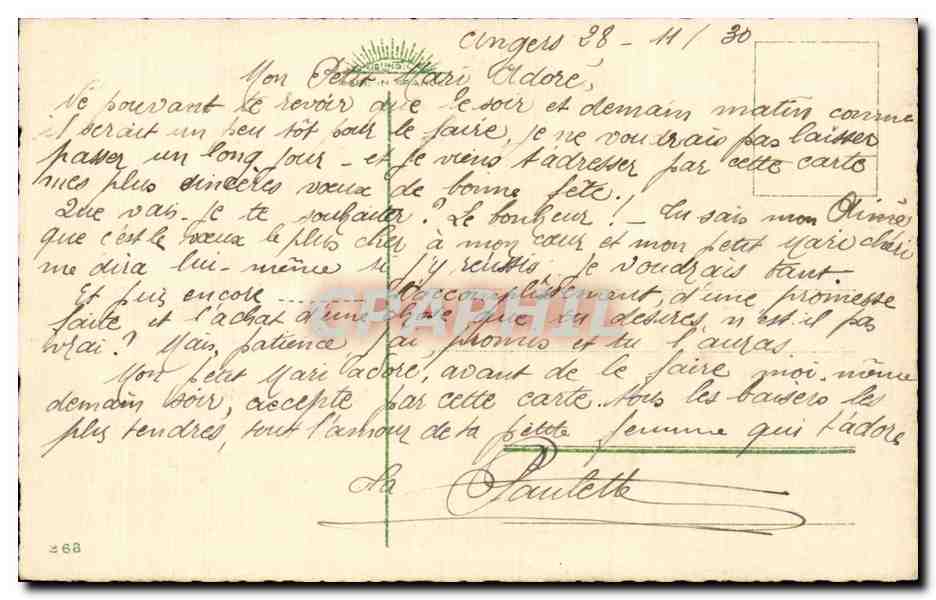 Angers 28 - 11 / 30
Mon Petit Mari Adoré,
Ne pouvant te revoir que ce soir et demain matin comme
il serait un peu tôt pour le faire, je ne voudrais pas laisser
passer un long jour - et je viens t'adresser par cette carte
mes plus sincères voeux de bonne fête.
Que vais-je te souhaiter ? Le bonheur ! - Tu sais mon Aimé
que c'est le voeux le plus cher à mon coeur et mon petit Mari chéri
me dira lui-même si j'y réussis, je voudrais tant.
Et puis encore ........ l'accomplissement, d'une promesse
faite et l'achat d'une chose que tu désires, n'est-il pas
vrai ? Mais, patience, j'ai promis et tu l'auras.
Mon petit Mari adoré, avant de le faire moi-même
demain soir, accepte par cette carte tous les baisers les
plus tendres, tout l'amour de ta petite femme qui t'adore
Ta Paulette
CPAPHIL
268